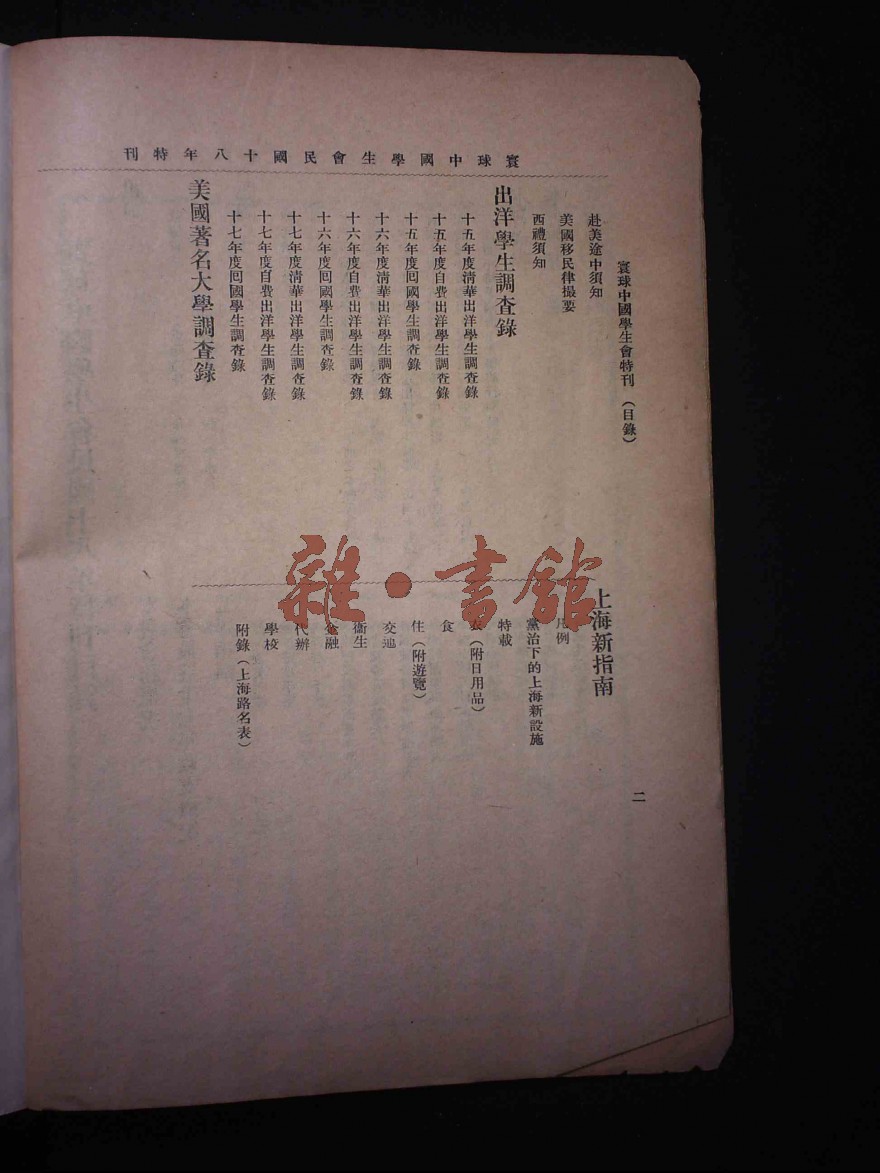 寰球中國學生會民國十八年特刊
寰球中國學生會特刊 （目錄）
二
赴美途中須知
美國移民律撮要
西禮須知
出洋學生調查錄
十五年度淸華出洋學生調查錄
十五年度自費出洋學生調查錄
十五年度回國學生調查錄
十六年度淸華出洋學生調查錄
十六年度自費出洋學生調查錄
十六年度回國學生調查錄
十七年度淸華出洋學生調查錄
十七年度自費出洋學生調查錄
十七年度回國學生調查錄
美國著名大學調查錄
上海新指南
凡例
黨治下的上海新設施
特載
衣（附日用品）
食
住（附遊覽）
交通
衞生
金融
代辦
學校
附錄（上海路名表）
雜·書館